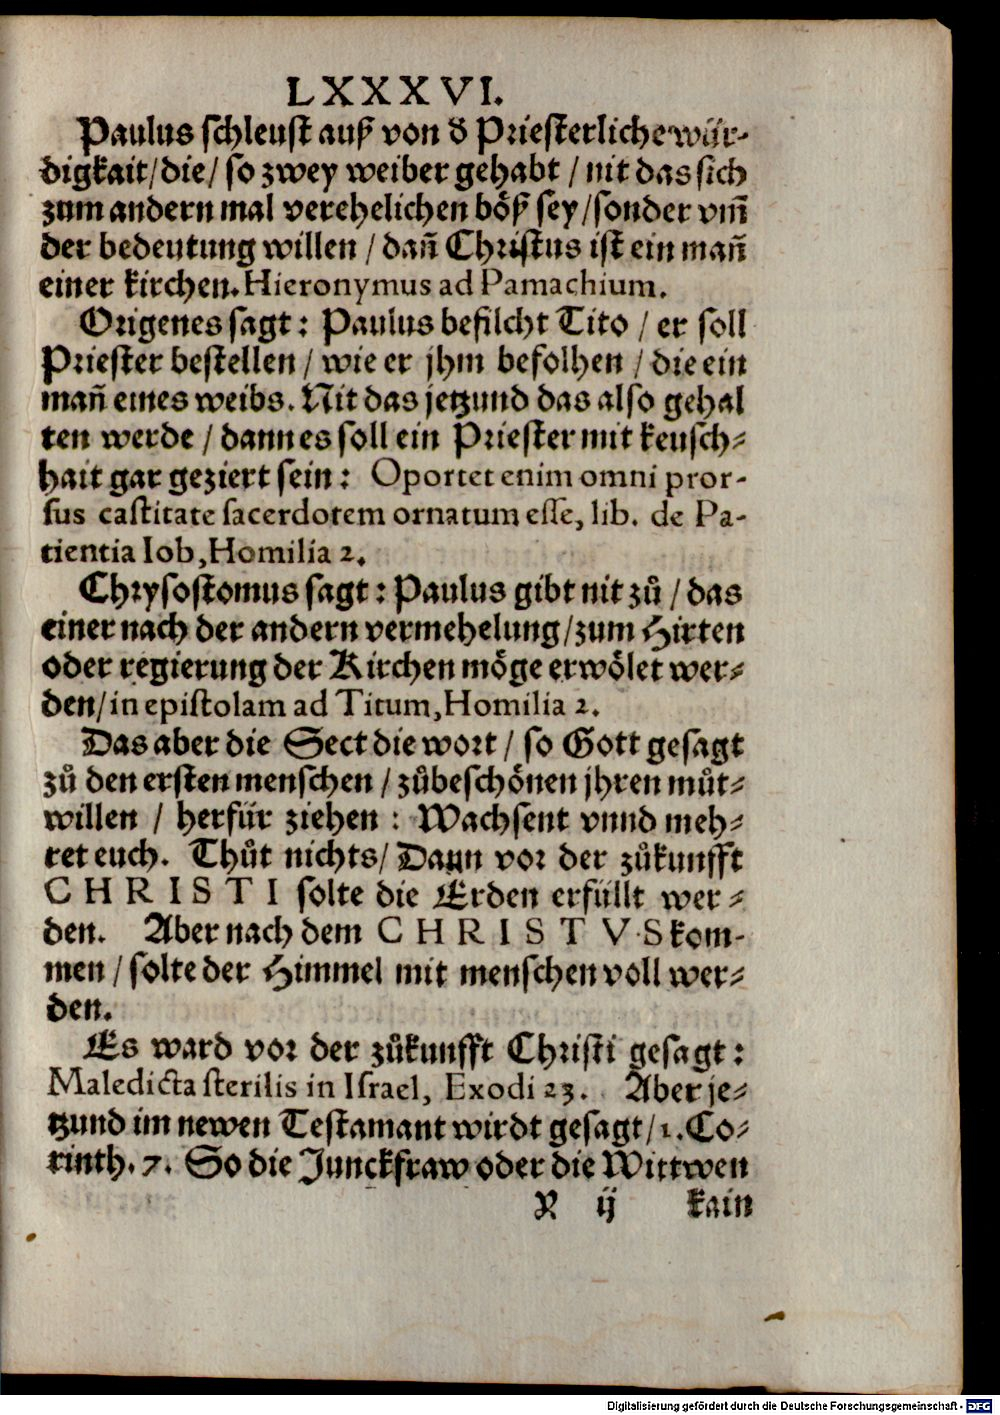 LXXXVI.
Paulus schleust auß von ď Priesterliche wür-
digkait/die/ so zwey weiber gehabt / nit das sich
zum andern mal verehelichen böß sey/sonder vm̃
der bedeutung willen / dañ Christus ist ein mañ
einer kirchen. Hieronymus ad Pamachium.
Origenes sagt: Paulus befilcht Tito / er soll
Priester bestellen / wie er jhm befolhen / die ein
mañ eines weibs. Nit das jetzund das also gehal
ten werde / dann es soll ein Priester mit keusch-
hait gar geziert sein: Oportet enim omni pror-
sus castitate sacerdotem ornatum esse, lib. de Pa-
tientia Iob, Homilia 2.
Chrysostomus sagt: Paulus gibt nit zů / das
einer nach der andern vermehelung/zum Hirten
oder regierung der Kirchen möge erwölet wer-
den/in epistolam ad Titum, Homilia 2.
Das aber die Sect die wort / so Gott gesagt
zů den ersten menschen / zůbeschönen jhren můt-
willen / herfür ziehen: Wachsent vnnd meh-
ret euch. Thůt nichts/ Dann vor der zůkunfft
CHRISTI solte die Erden erfüllt wer-
den. Aber nach dem CHRISTVS kom-
men / solte der Himmel mit menschen voll wer-
den.
Es ward vor der zůkunfft Christi gesagt:
Maledicta sterilis in Israel, Exodi 23. Aber je-
tzund im newen Testamant wirdt gesagt/1. Co-
rinth. 7. So die Junckfraw oder die Wittwen
X ij kain
Digitalisierung gefördert durch die Deutsche Forschungsgemeinschaft - DFG